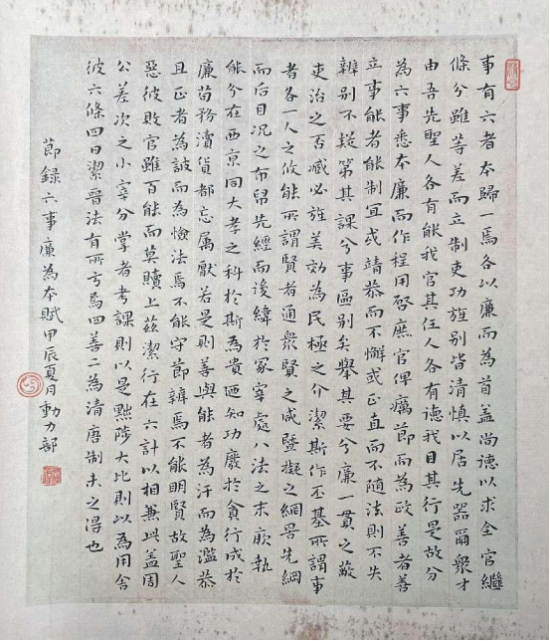 事有六者本歸一焉各以廉而為首盖尚德以求全官繼
條兮雖等差而立制吏功旌别皆清慎以居先器爾衆才
由吾先聖人各有能我官其任人各有德我目其行是故分
為六事悉本廉而作程用啓庶官俾厲節而為政善者善
立事能者能制宜或靖恭而不懈或正直而不隨法則不失
辨别不疑第其課兮事區别矣舉其要兮廉一貫之蔽
吏治之否臧必旌美効為民極之介潔斯作丕基所謂事
者各一人之攸能所謂賢者通衆賢之咸暨擬之綱罟先綱
而后目况之布帛先經而後緯於冢宰處八法之末厥執
能兮在西京同大孝之科於斯為貴廼知功廢於貪行成於
廉苟務瀆貨都忘属厭若是則善與能者為汙而為濫恭
且正者為詖而為憸法焉不能守節辨焉不能明賢故聖人
惡彼敗官雖百能而莫贖上兹潔行在六計以相兼此盖周
公差次之小宰分掌者考課則以是黜陟大比則以為用舍
彼六條四曰潔晉法有所亏焉四善二為清唐制未之得也
節録六事廉為本賦甲辰夏月動力部